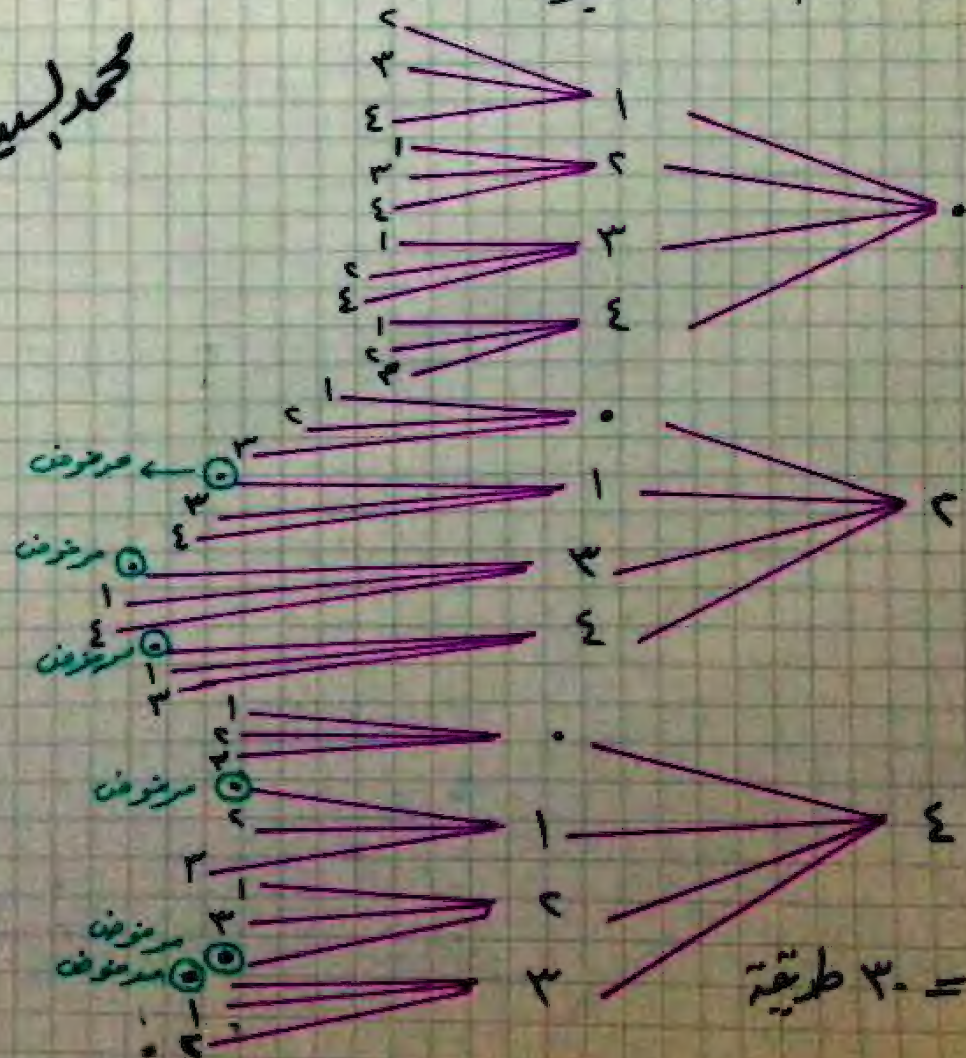 محمد السيد
٠
١
٢
٣
٤
٢
١
٣
٤
٣
١
٢
٤
٤
١
٢
٣
٢
٠
١
٢
٣
١
٠ ← مرفوض
٣
٤
٣
٠ مرفوض
١
٤
٤
٠ مرفوض
١
٣
٤
٠
١
٢
٣
١
٠ مرفوض
٢
٣
٢
١
٣
٠ مرفوض
٣
٠ مرفوض
١
٢
= ٣٠ طريقة